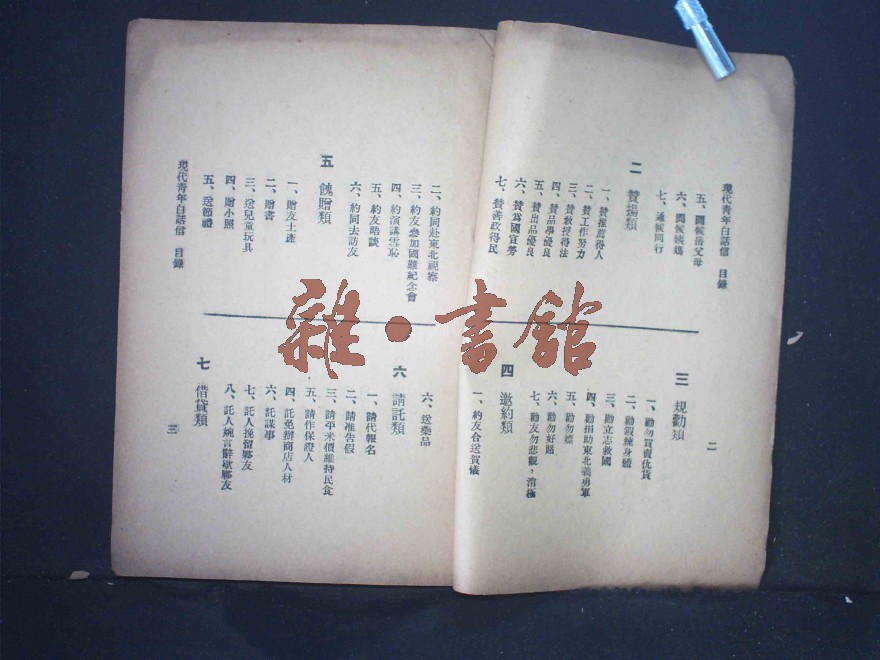 現代青年白話信 目錄
二
五、問候岳父母
六、問候姨媽
七、通候同行
二 贊揚類
一、贊推薦得人
二、贊工作努力
三、贊教授得法
四、贊品學優良
五、贊出品優良
六、贊爲國宣勞
七、贊善政得民
三 規勸類
一、勸勿買賣仇貨
二、勸鍛練身體
三、勸立志救國
四、勸捐助東北義勇軍
五、勸勿嫖
六、勸勿好賭
七、勸友勿悲觀，消極
四 邀約類
一、約友合送賀儀
二、約同赴東北視察
三、約友參加國難紀念會
四、約演講雪恥
五、約友晤談
六、約同去訪友
五 餽贈類
一、贈友土產
二、贈書
三、送兒童玩具
四、贈小照
五、送節禮
六、送藥品
六 請託類
一、請代報名
二、請准告假
三、請平米價維持民食
五、請作保證人
四、託免辦商店人材
六、託謀事
七、託人挽留鄉友
八、託人婉言辭歇鄉友
七 借貸類
現代青年白話信 目錄
三
雜·書館